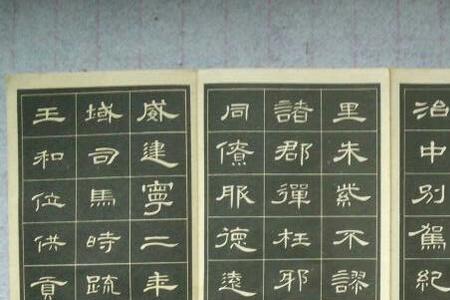 治中別駕紀
里朱紫不謬
諸郡彈枉邪
同僚服德遠
威建寧二年
域司馬時疏
王和位供貢